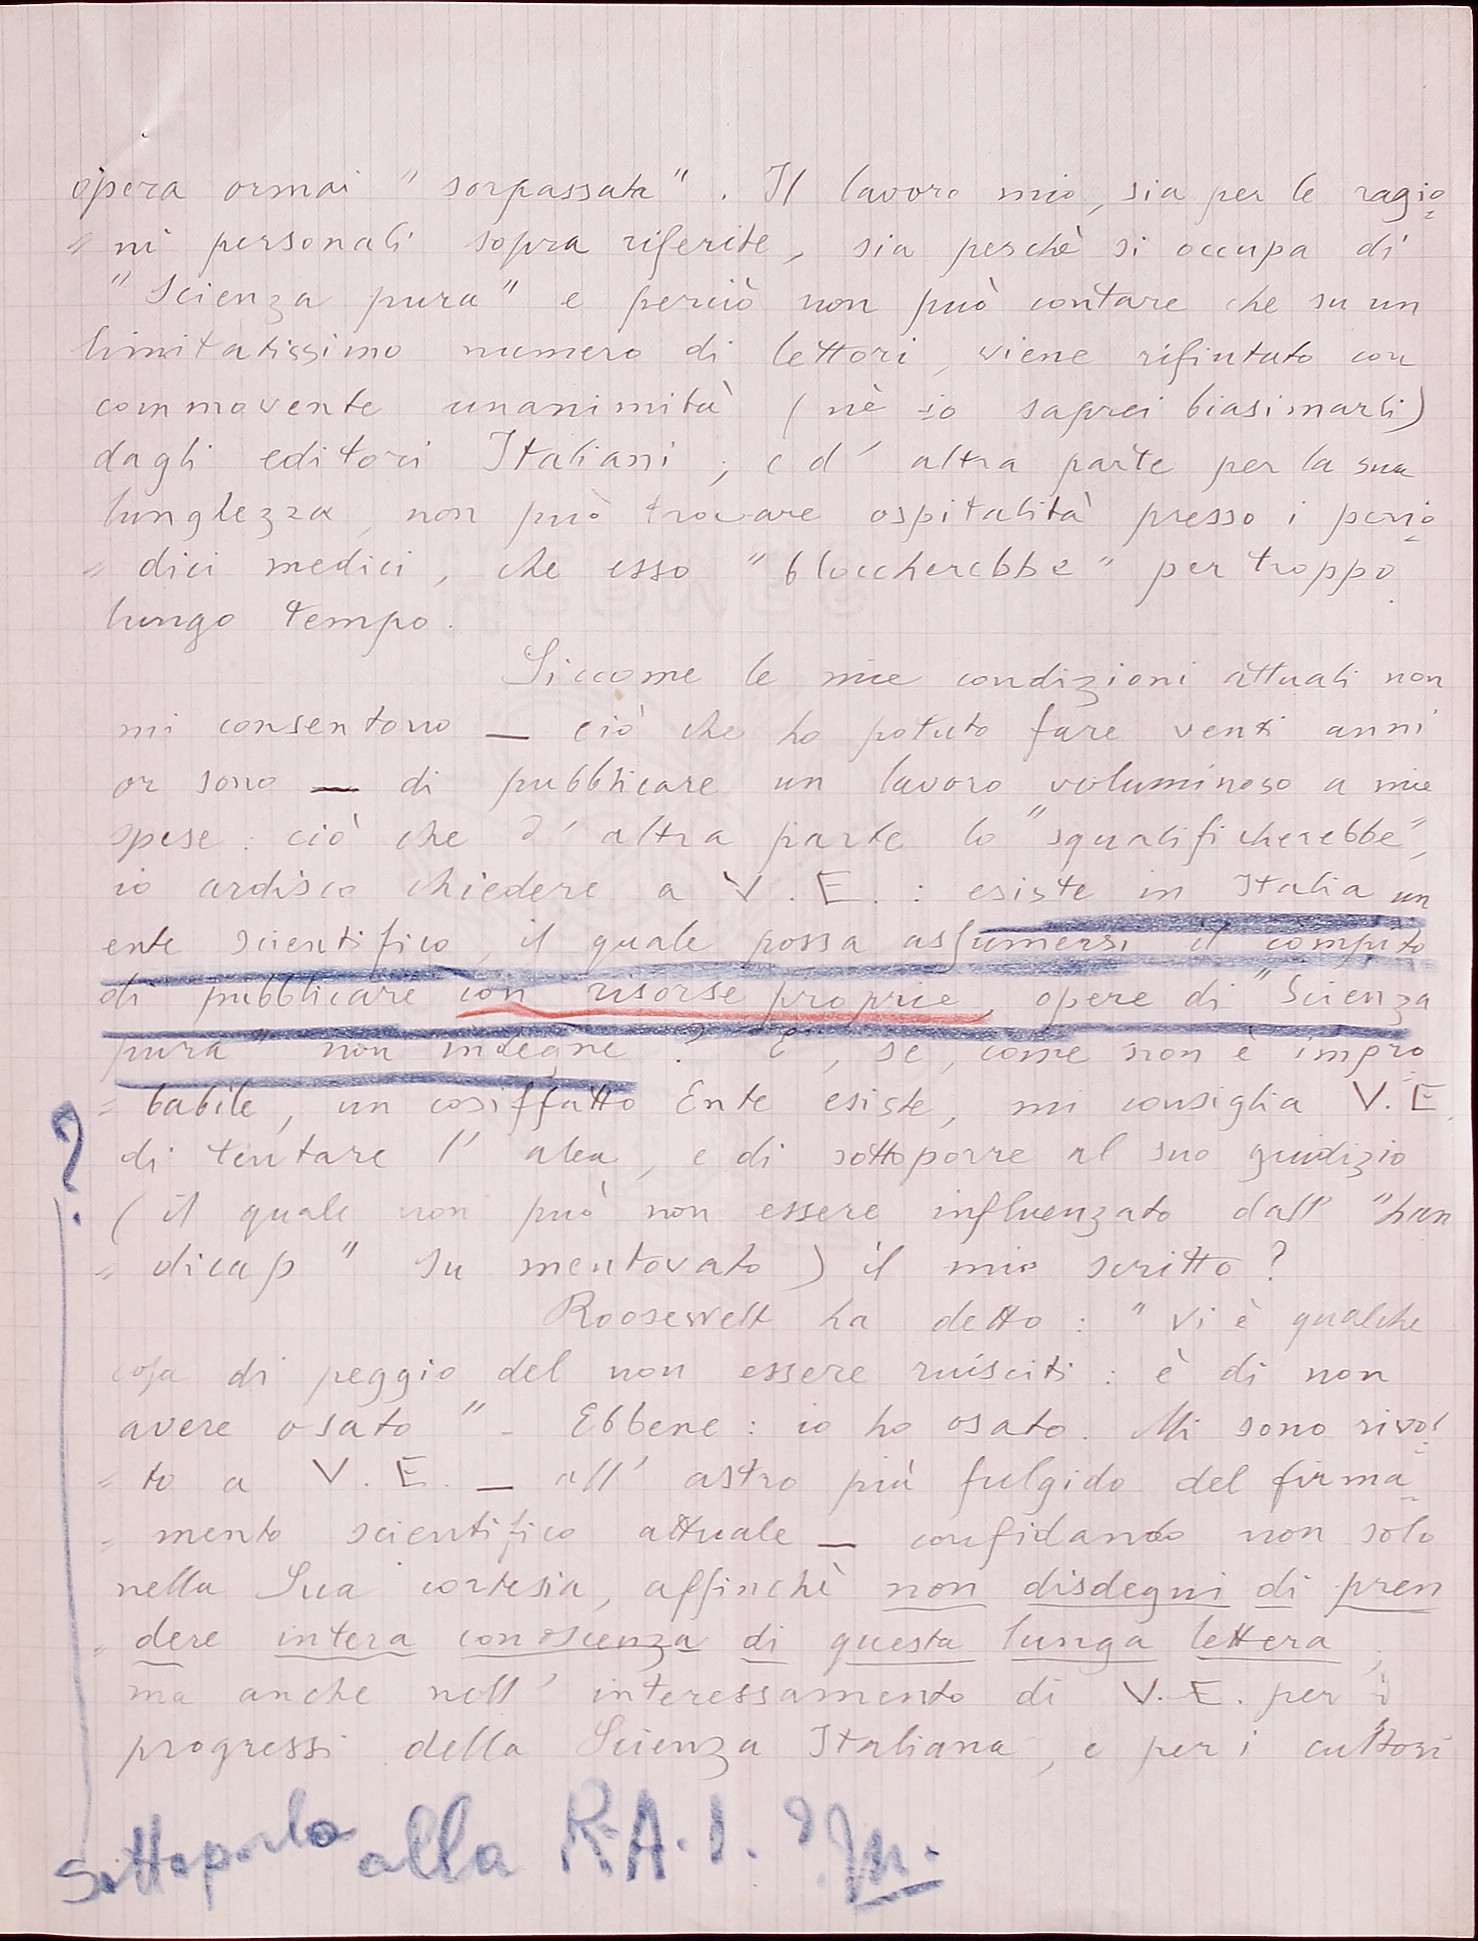 opera ormai "sorpassata". Il lavoro mio, sia per le ragio
= ni personali sopra riferite, sia perchè si occupa di
"Scienza pura" e perciò non può contare che su un
limitatissimo numero di lettori, viene rifiutato con
commovente unanimità (nè io saprei biasimarli)
dagli editori Italiani; e d'altra parte per la sua
lunghezza, non può trovare ospitalità presso i perio
= dici medici, che esso "bloccherebbe" per troppo
lungo tempo.
Siccome le mie condizioni attuali non
mi consentono — ciò che ho potuto fare venti anni
or sono — di pubblicare un lavoro voluminoso a mie
spese: ciò che d'altra parte lo "squalificherebbe",
io ardisco chiedere a V.E.: esiste in Italia un
ente scientifico, il quale possa assumersi il compito
di pubblicare con risorse proprie, opere di "Scienza
pura" non indegne? E, se, come non è impro
= babile, un cosiffatto Ente esiste, mi consiglia V.E.
di tentare l'alea, e di sottoporre al suo giudizio
(il quale non può non essere influenzato dall' "han
= dicap" su mentovato) il mio scritto?
Roosewelt ha detto: "Vi è qualche
cosa di peggio del non essere riusciti: è di non
avere osato" - Ebbene: io ho osato. Mi sono rivol
= to a V.E. — all'astro più fulgido del firma
= mento scientifico attuale — confidando non solo
nella Sua cortesia, affinchè non disdegni di pren
= dere intera conoscenza di questa lunga lettera,
ma anche nell'interessamento di V.E. per i
progressi della Scienza Italiana, e per i cultori
?
Sottoporlo alla R.A.I. ?